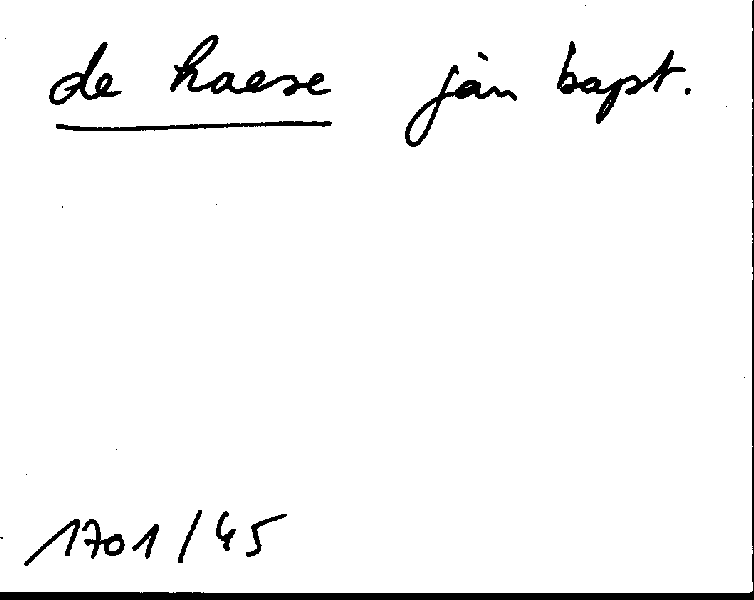 de haese jan bapt.
1701/45